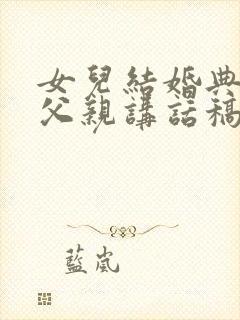 女兒結婚典
父親講話稿
藍嵐